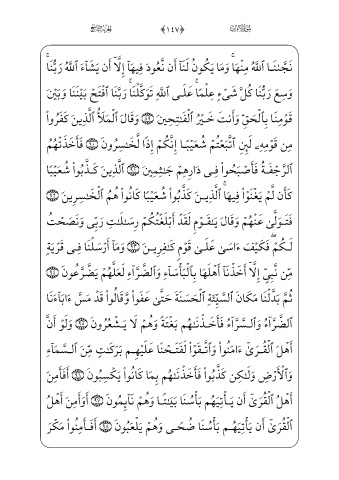 ﴿١٤٧﴾
نَجَّىٰنَا ٱللَّهُ مِنْهَا ۚ وَمَا يَكُونُ لَنَآ أَن نَّعُودَ فِيهَآ إِلَّآ أَن يَشَآءَ ٱللَّهُ رَبُّنَا ۚ
وَسِعَ رَبُّنَا كُلَّ شَىْءٍ عِلْمًا ۚ عَلَى ٱللَّهِ تَوَكَّلْنَا ۚ رَبَّنَا ٱفْتَحْ بَيْنَنَا وَبَيْنَ
قَوْمِنَا بِٱلْحَقِّ وَأَنتَ خَيْرُ ٱلْفَـٰتِحِينَ ۝ وَقَالَ ٱلْمَلَأُ ٱلَّذِينَ كَفَرُوا۟
مِن قَوْمِهِۦ لَئِنِ ٱتَّبَعْتُمْ شُعَيْبًا إِنَّكُمْ إِذًا لَّخَـٰسِرُونَ ۝ فَأَخَذَتْهُمُ
ٱلرَّجْفَةُ فَأَصْبَحُوا۟ فِى دَارِهِمْ جَـٰثِمِينَ ۝ ٱلَّذِينَ كَذَّبُوا۟ شُعَيْبًا
كَأَن لَّمْ يَغْنَوْا۟ فِيهَا ۚ ٱلَّذِينَ كَذَّبُوا۟ شُعَيْبًا كَانُوا۟ هُمُ ٱلْخَـٰسِرِينَ ۝
فَتَوَلَّىٰ عَنْهُمْ وَقَالَ يَـٰقَوْمِ لَقَدْ أَبْلَغْتُكُمْ رِسَـٰلَـٰتِ رَبِّى وَنَصَحْتُ
لَكُمْ ۖ فَكَيْفَ ءَاسَىٰ عَلَىٰ قَوْمٍ كَـٰفِرِينَ ۝ وَمَآ أَرْسَلْنَا فِى قَرْيَةٍ
مِّن نَّبِىٍّ إِلَّآ أَخَذْنَآ أَهْلَهَا بِٱلْبَأْسَآءِ وَٱلضَّرَّآءِ لَعَلَّهُمْ يَضَّرَّعُونَ ۝
ثُمَّ بَدَّلْنَا مَكَانَ ٱلسَّيِّئَةِ ٱلْحَسَنَةَ حَتَّىٰ عَفَوا۟ وَّقَالُوا۟ قَدْ مَسَّ ءَابَآءَنَا
ٱلضَّرَّآءُ وَٱلسَّرَّآءُ فَأَخَذْنَـٰهُم بَغْتَةً وَهُمْ لَا يَشْعُرُونَ ۝ وَلَوْ أَنَّ
أَهْلَ ٱلْقُرَىٰٓ ءَامَنُوا۟ وَٱتَّقَوْا۟ لَفَتَحْنَا عَلَيْهِم بَرَكَـٰتٍ مِّنَ ٱلسَّمَآءِ
وَٱلْأَرْضِ وَلَـٰكِن كَذَّبُوا۟ فَأَخَذْنَـٰهُم بِمَا كَانُوا۟ يَكْسِبُونَ ۝ أَفَأَمِنَ
أَهْلُ ٱلْقُرَىٰٓ أَن يَأْتِيَهُم بَأْسُنَا بَيَـٰتًا وَهُمْ نَآئِمُونَ ۝ أَوَأَمِنَ أَهْلُ
ٱلْقُرَىٰٓ أَن يَأْتِيَهُم بَأْسُنَا ضُحًى وَهُمْ يَلْعَبُونَ ۝ أَفَأَمِنُوا۟ مَكْرَ